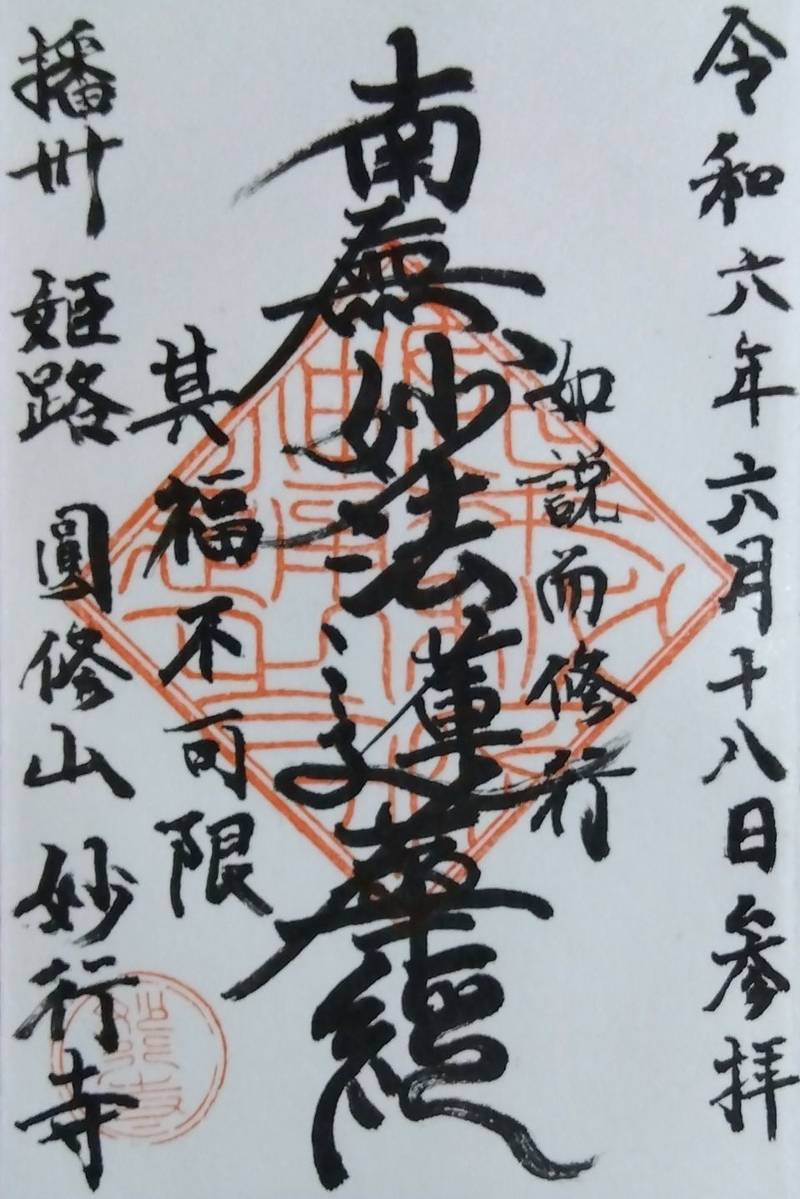 令和六年六月十八日参拝
如説而修行
南無妙法蓮華經
其福不可限
播州 姫路 圓修山 妙行寺